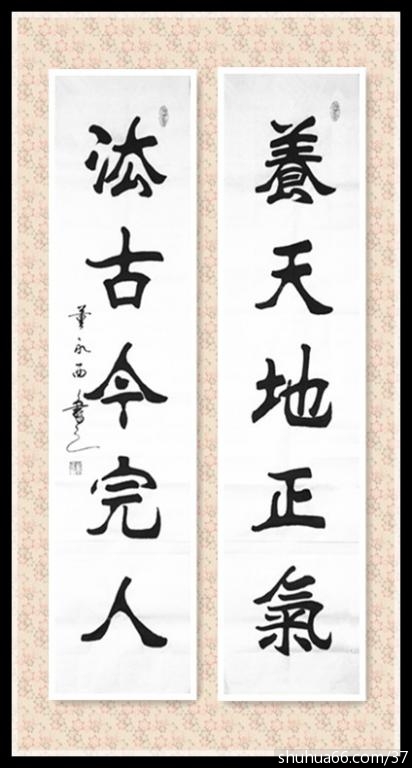 養天地正氣
法古今完人
董永西書
shuhua66.com/37